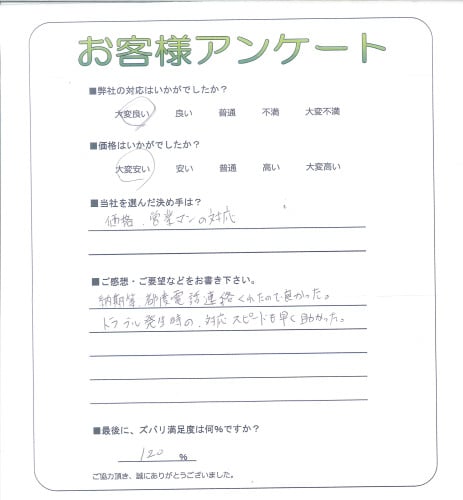 お客様アンケート
■弊社の対応はいかがでしたか？
大変良い 良い 普通 不満 大変不満
■価格はいかがでしたか？
大変安い 安い 普通 高い 大変高い
■当社を選んだ決め手は？
価格、営業マンの対応
■ご感想・ご要望などをお書き下さい。
納期等、都度電話連絡くれたので良かった。
トラブル発生時の、対応スピードも早く助かった。
■最後に、ズバリ満足度は何%ですか？
120 %
ご協力頂き、誠にありがとうございました。